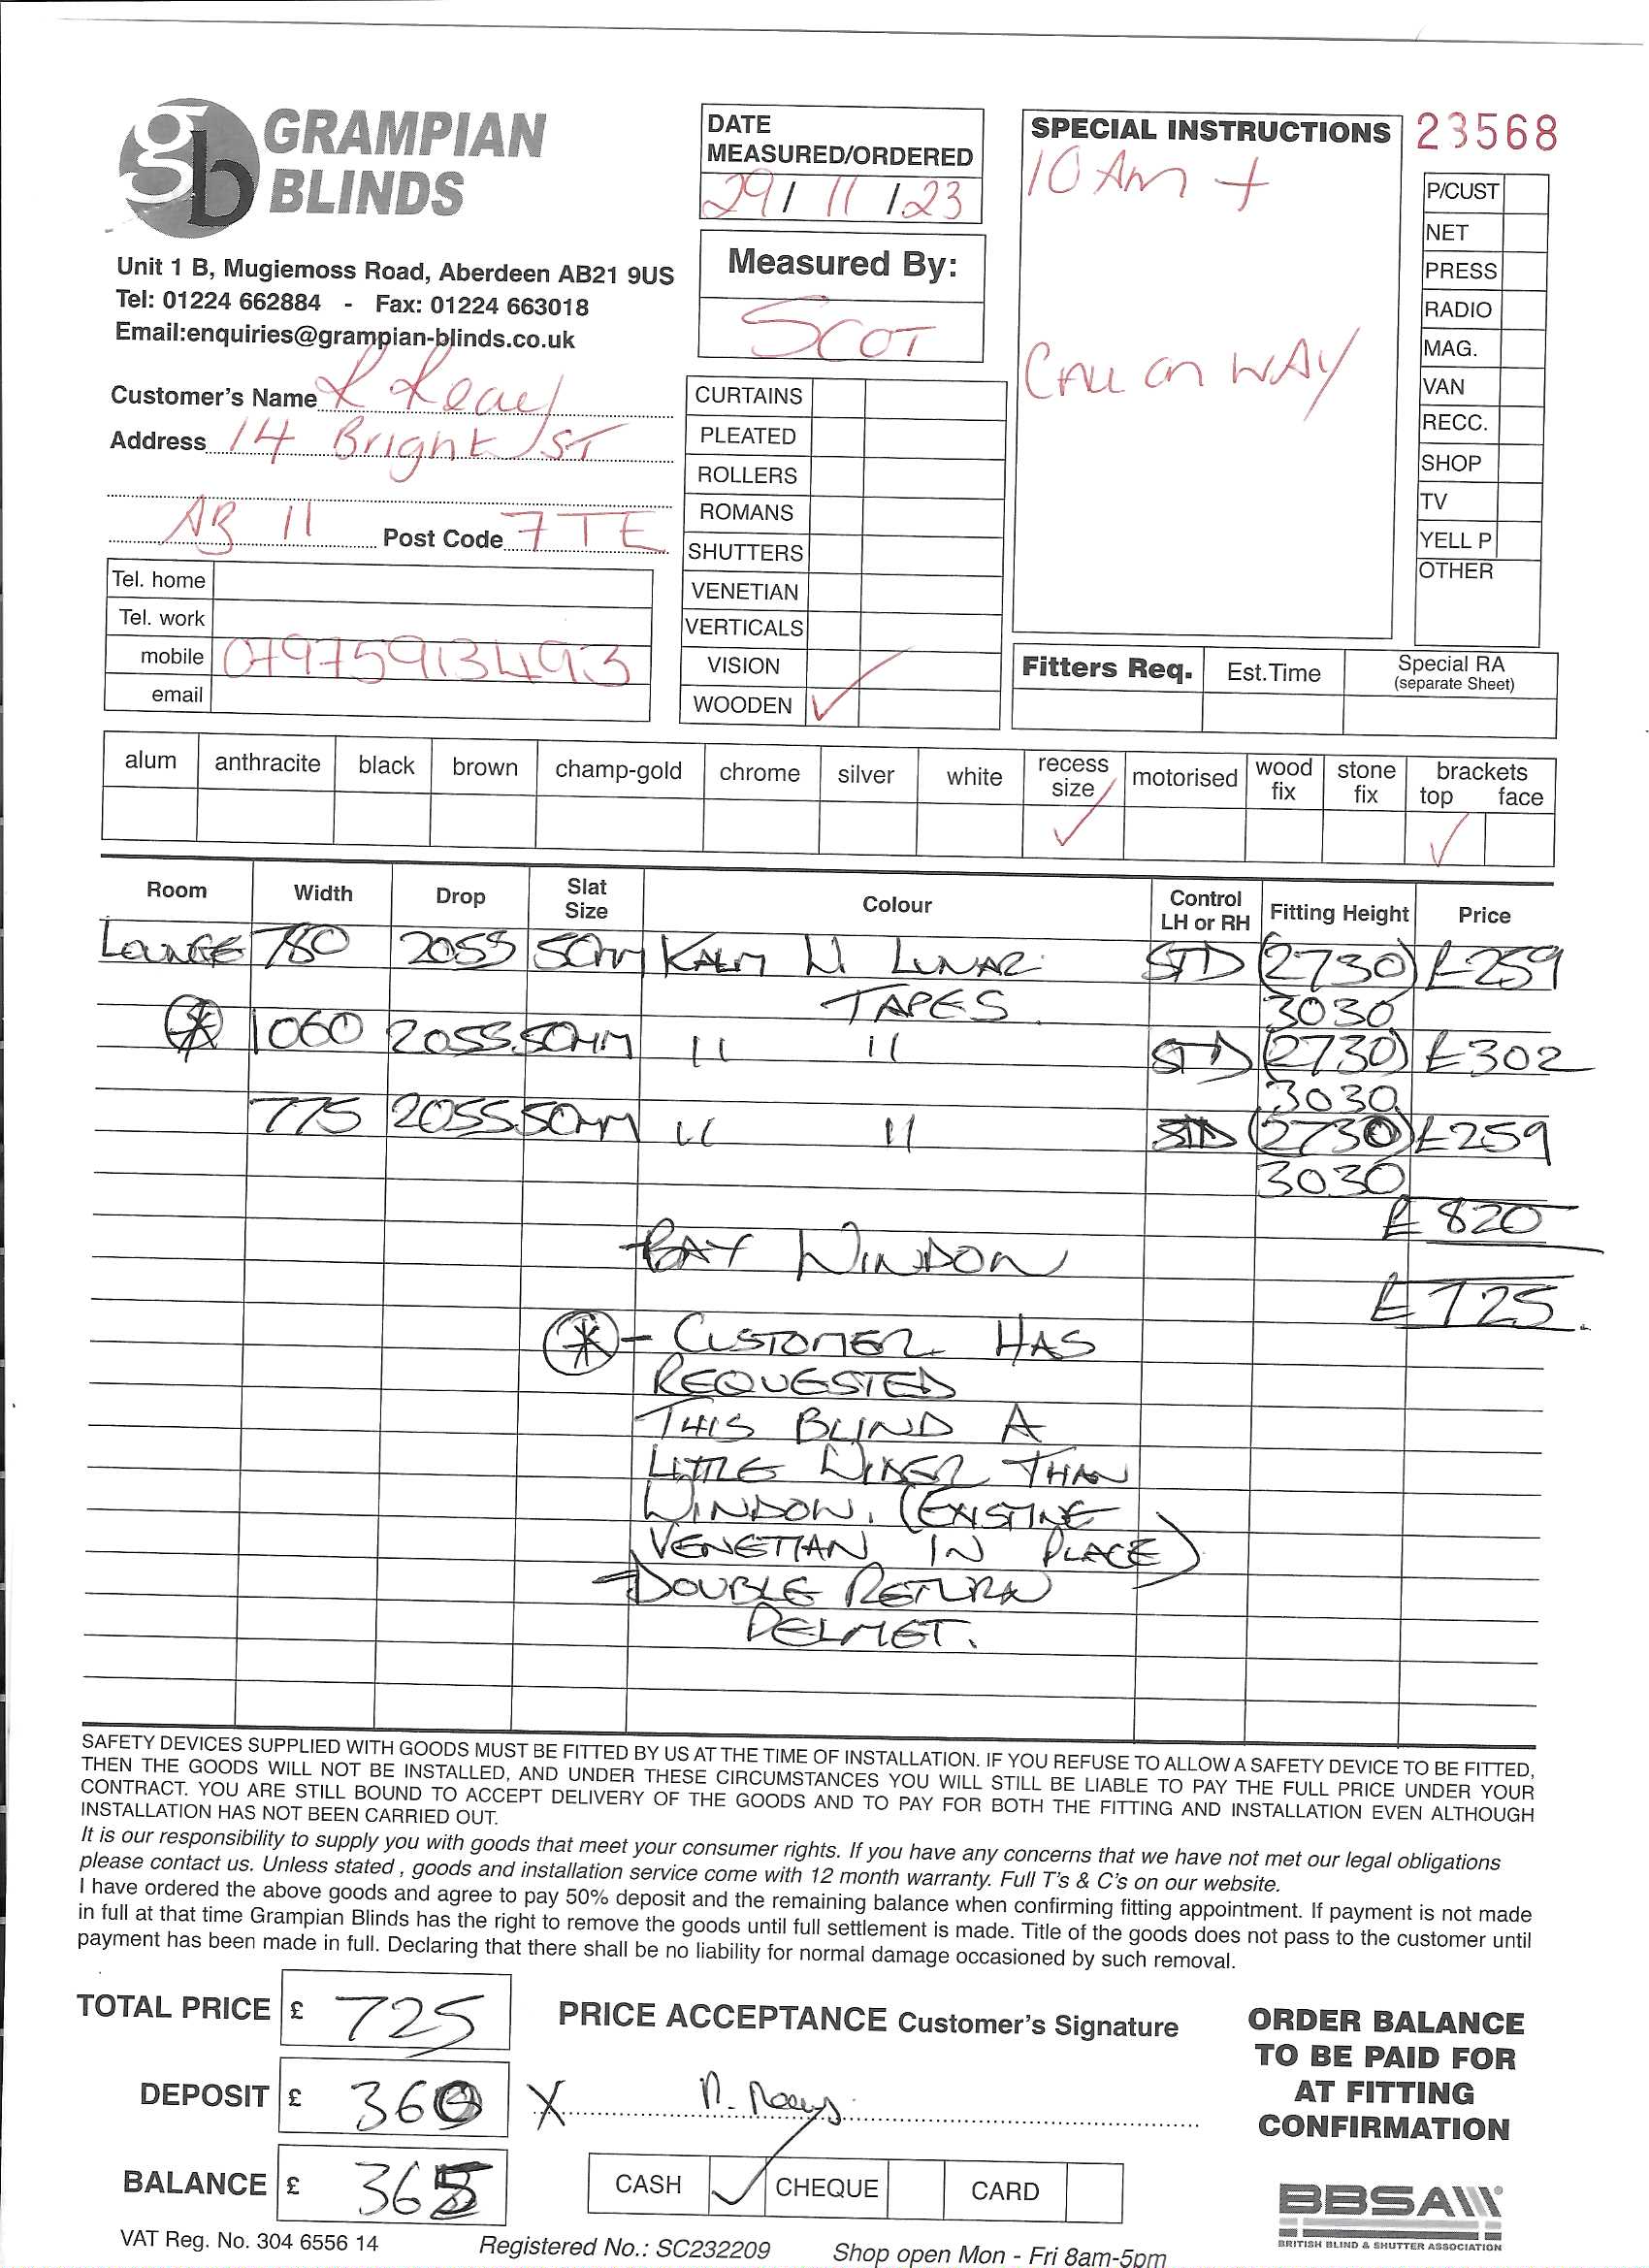 gb GRAMPIAN
BLINDS
Unit 1 B, Mugiemoss Road, Aberdeen AB21 9US
Tel: 01224 662884 - Fax: 01224 663018
Email:enquiries@grampian-blinds.co.uk
Customer's Name R Reay
Address 14 Bright ST
AB 11 Post Code 7TE
Tel. home
Tel. work
mobile 07975913493
email
DATE
MEASURED/ORDERED
29/11/23
Measured By:
SCOT
CURTAINS
PLEATED
ROLLERS
ROMANS
SHUTTERS
VENETIAN
VERTICALS
VISION
WOODEN ✓
SPECIAL INSTRUCTIONS
10 Am +
CALL on WAY
23568
P/CUST
NET
PRESS
RADIO
MAG.
VAN
RECC.
SHOP
TV
YELL P
OTHER
Fitters Req. Est.Time Special RA
(separate Sheet)
alum anthracite black brown champ-gold chrome silver white recess size ✓ motorised wood fix stone fix brackets top ✓ face
Room Width Drop Slat Size Colour Control LH or RH Fitting Height Price
LOUNGE 780 2055 50mm KALM W LUNAR STD (2730) £259
TAPES 3030
* 1060 2055 50MM " " STD (2730) £302
3030
775 2055 50mm " " STD (2730) £259
3030
£820
- BAY WINDOW
£725.
* - CUSTOMER HAS
REQUESTED
THIS BLIND A
LITTLE WIDER THAN
WINDOW. (EXISTING
VENETIAN IN PLACE)
- DOUBLE RETURN
PELMET.
SAFETY DEVICES SUPPLIED WITH GOODS MUST BE FITTED BY US AT THE TIME OF INSTALLATION. IF YOU REFUSE TO ALLOW A SAFETY DEVICE TO BE FITTED,
THEN THE GOODS WILL NOT BE INSTALLED, AND UNDER THESE CIRCUMSTANCES YOU WILL STILL BE LIABLE TO PAY THE FULL PRICE UNDER YOUR
CONTRACT. YOU ARE STILL BOUND TO ACCEPT DELIVERY OF THE GOODS AND TO PAY FOR BOTH THE FITTING AND INSTALLATION EVEN ALTHOUGH
INSTALLATION HAS NOT BEEN CARRIED OUT.
It is our responsibility to supply you with goods that meet your consumer rights. If you have any concerns that we have not met our legal obligations
please contact us. Unless stated , goods and installation service come with 12 month warranty. Full T's & C's on our website.
I have ordered the above goods and agree to pay 50% deposit and the remaining balance when confirming fitting appointment. If payment is not made
in full at that time Grampian Blinds has the right to remove the goods until full settlement is made. Title of the goods does not pass to the customer until
payment has been made in full. Declaring that there shall be no liability for normal damage occasioned by such removal.
TOTAL PRICE £ 725
DEPOSIT £ 360
BALANCE £ 365
PRICE ACCEPTANCE Customer's Signature
X
CASH ✓ CHEQUE CARD
ORDER BALANCE
TO BE PAID FOR
AT FITTING
CONFIRMATION
BBSA
BRITISH BLIND & SHUTTER ASSOCIATION
VAT Reg. No. 304 6556 14 Registered No.: SC232209 Shop open Mon - Fri 8am-5pm